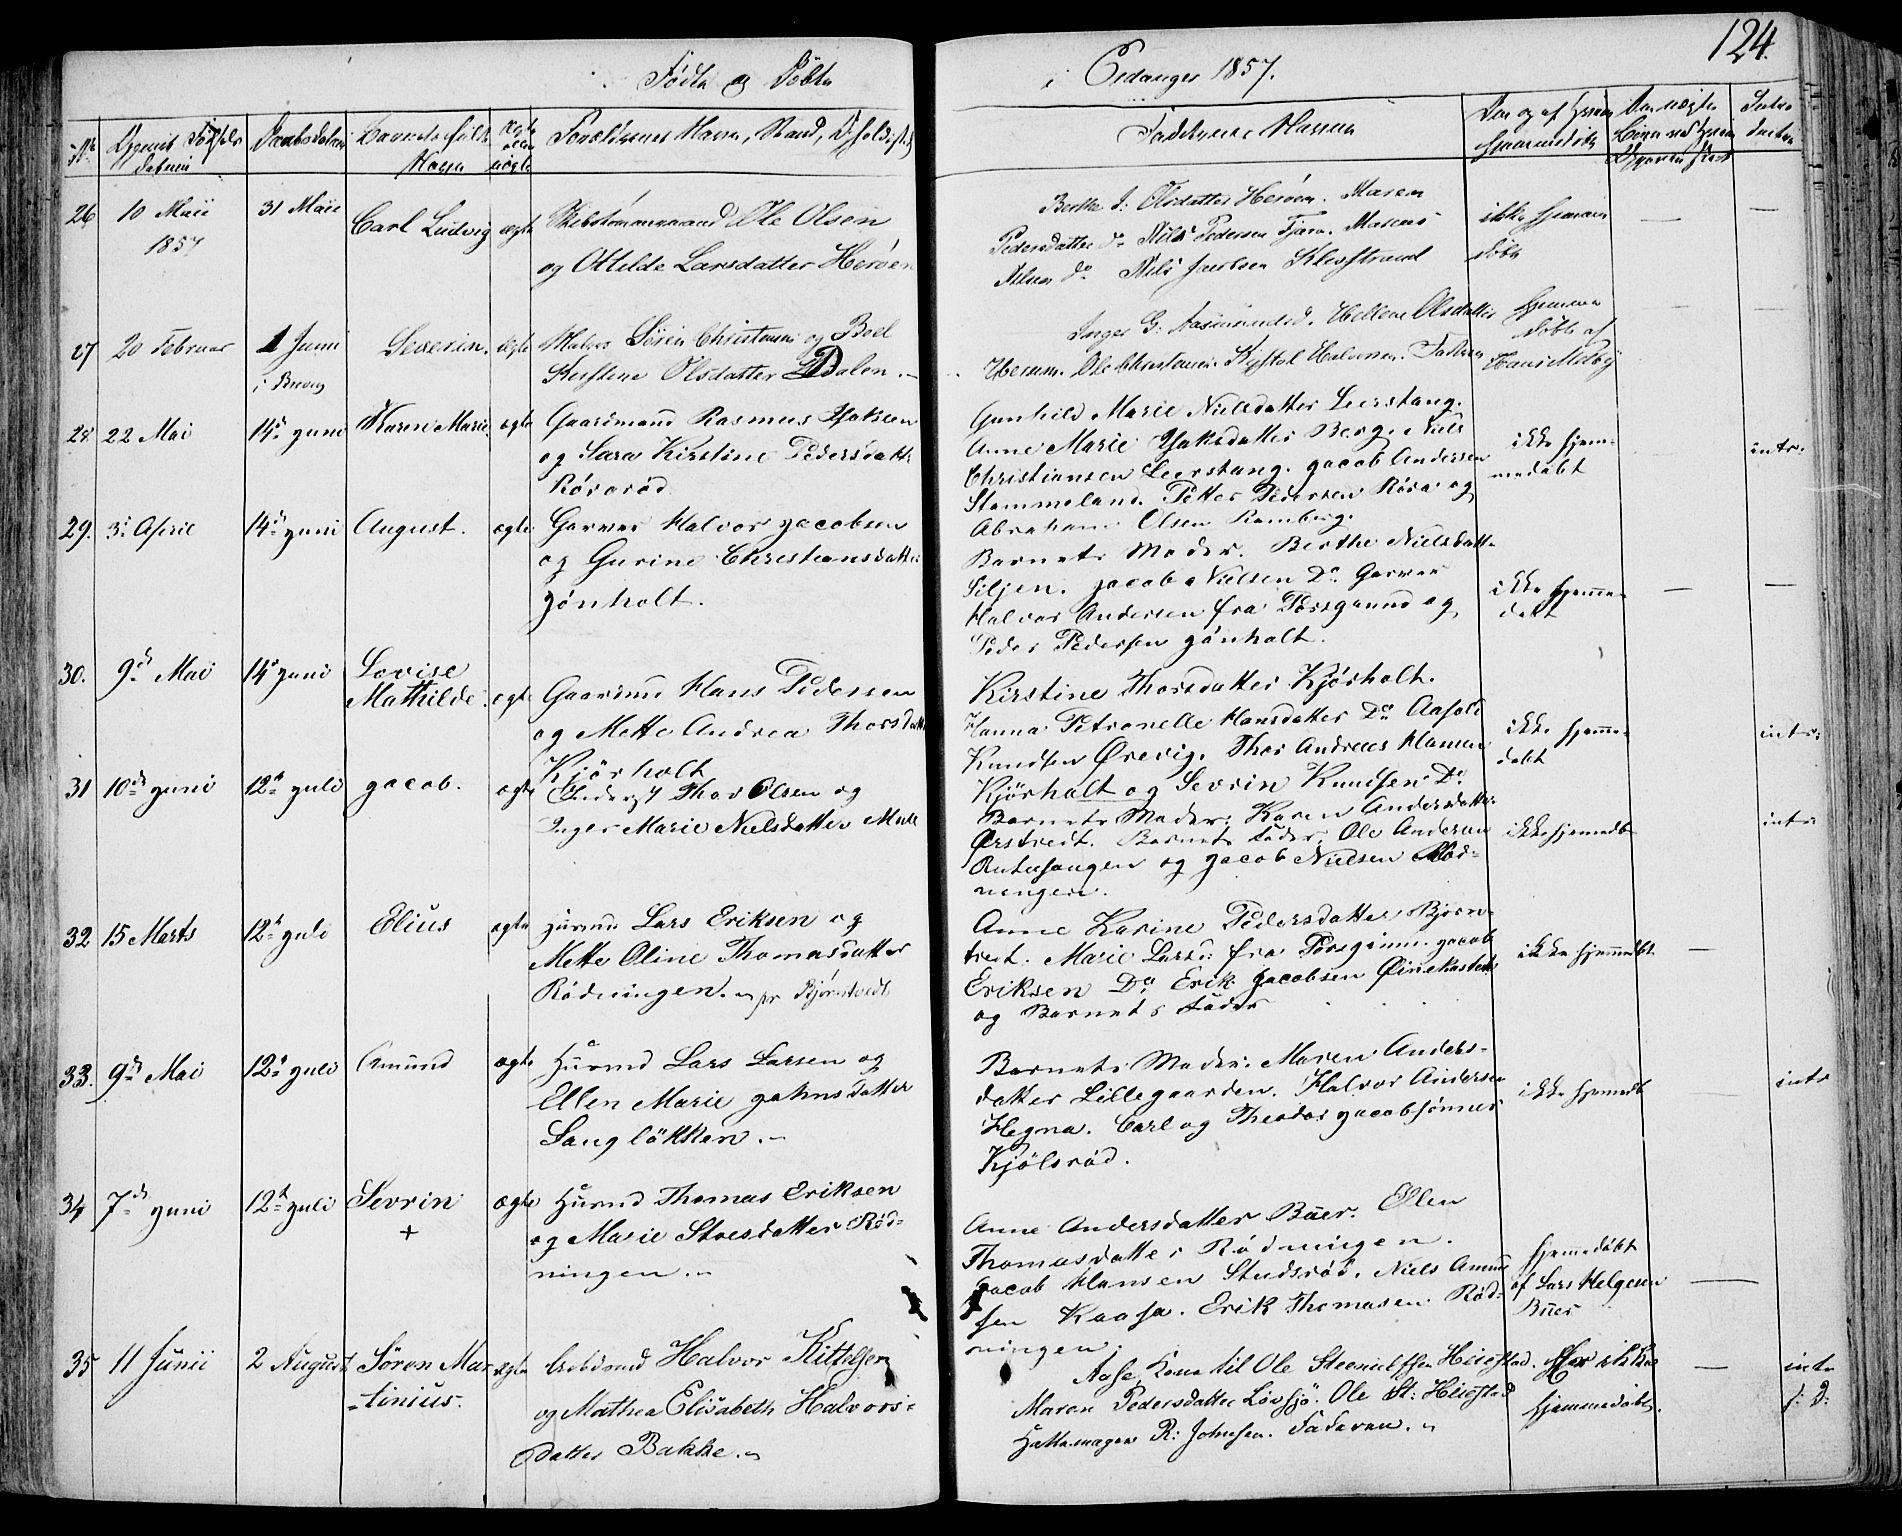 124.
Födte og Döbte
i Eidanger 1857.
No
Döbtes Fødsels datum
Daabsdatum
Barnets fulde Navn
ægte eller uægte
Forældrenes Navn, Stand, Opholdssted
Faddernes Navne
Naar og af hvem hjemmedöbt
Intro ductus
26 10 Maii 1857
31 Maii
Carl Ludvig
ægte
Skibstömmermand Ole Olsen
og Ottilde Larsdatter Heröen
Berthe J: Olsdatter Heröen. Maren
Pedersdatter do Nils Pedersen Tjern. Marcus
Nilsen do. Nils Jacobsen Klevstrand
ikke hjemme
döbt
27 20 Februar
1 Juni
i Brevig
Severin.
ægte
Matros Sören Christensen og Boel
Kirstine Olsdatter Dalen.
Inger G: Aasmundsd. Hellene Olsdatter
Herum. Ole Christensen. Kystol Halvorsen. Faderen
hjemme
döbt af
Hans Melby
28. 22 Mai
14de Juni
Karen Marie.
ægte
Gaardmand Rasmus Isaksen
og Sara Kirstine Pedersdatt:
Röraröd
Gunhild Marie Nielsdatter Leerstang.
Anne Marie Isaksdatter Berg. Niels
Christiansen Leerstang. Jacob Andersen
Stammeland. Petter Pedersen Röra og
Abraham Olsen Ramberg.
ikke hjem-
medöbt
intr.
29. 3de April
14de Juni
August.
ægte
Garver Halvor Jacobsen
og Gurine Christensdatter
Jönholt.
Barnets Moder. Berthe Nielsdatt.
Siljen. Jacob Nielsen Do. Garver
Halvor Andersen fra Porsgrund og
Peder Pedersen Jönholt.
ikke hjemme-
döbt
30. 9de Mai
14de Juni
Lovise
Mathilde.
ægte
Gaardmd Hans Pedersen
og Mette Andrea Thorsdatter
Kjörholt
Kirstine Thorsdatter Kjörholt.
Hanna Petronelle Hansdatter Do Aasold
Knudsen Ørevig. Thor Andreas Hansen
Kjörholt og Sevrin Knudsen Do
ikke hjemme-
döbt
intr:
31 10de Juni
12te Juli
Jacob.
ægte
Inderst Thor Olsen og
Inger Marie Nielsdatter Mule
Barnets Moder: Karen Andersdatter
Ørstvedt. Barnets Fader. Ole Andersen
og Jacob Nielsen Röd-
ningen.
ikke hjemmedb
intr
32 15 Marts
12te Juli
Elius
ægte
Husmd Lars Eriksen og
Mette Oline Thomasdatter
Rödningen. pr Bjørntvedt
Anne Karine Pedersdatter Björn-
tvedt. Marie Larsd: fra Porsgrund. Jacob
Eriksen Do Erik Jacobsen
og Barnets Fader
ikke hjemmedbt
33. 9de Mai
12te Juli
Amund
ægte
Husmd Lars Larsen og
Ellen Marie Johnsdatter
Langlökken.
Barnets Moder: Maren Anders-
datter Lillegaarden. Halvor Andersen
Hegna. Carl og Theodor Jacobsönner
Kjölsröd.
ikke hjemmedb
intr
34 7de Juni
12te Juli
Sevrin
+
ægte
Husmd Thomas Eriksen
og Marie Stoesdatter Röd-
ningen.
Anne Andersdatter Buer. Ellen
Thomasdatter Rödningen.
Jacob Hansen Studsröd. Niels Amund
sen Kaasa. Erik Thomasen Röd-
ningen.
hjemmedöbt
af Lars Helgesen
Buer
35 11 Junii
2 August
Sören Mar
-tinius.
ægte
Arbdsmd Halvor Kittilsen
og Mathea Elisabeth Halvors-
datter Bakke.
Aase, Kone til Ole Steenulfsen Heiestad.
Maren Pedersdatter Lövsjö. Ole St: Heiestad
Hattemager R: Johnsen. Faderen.
ikke
hjemmedöbt.
intr
s: D: